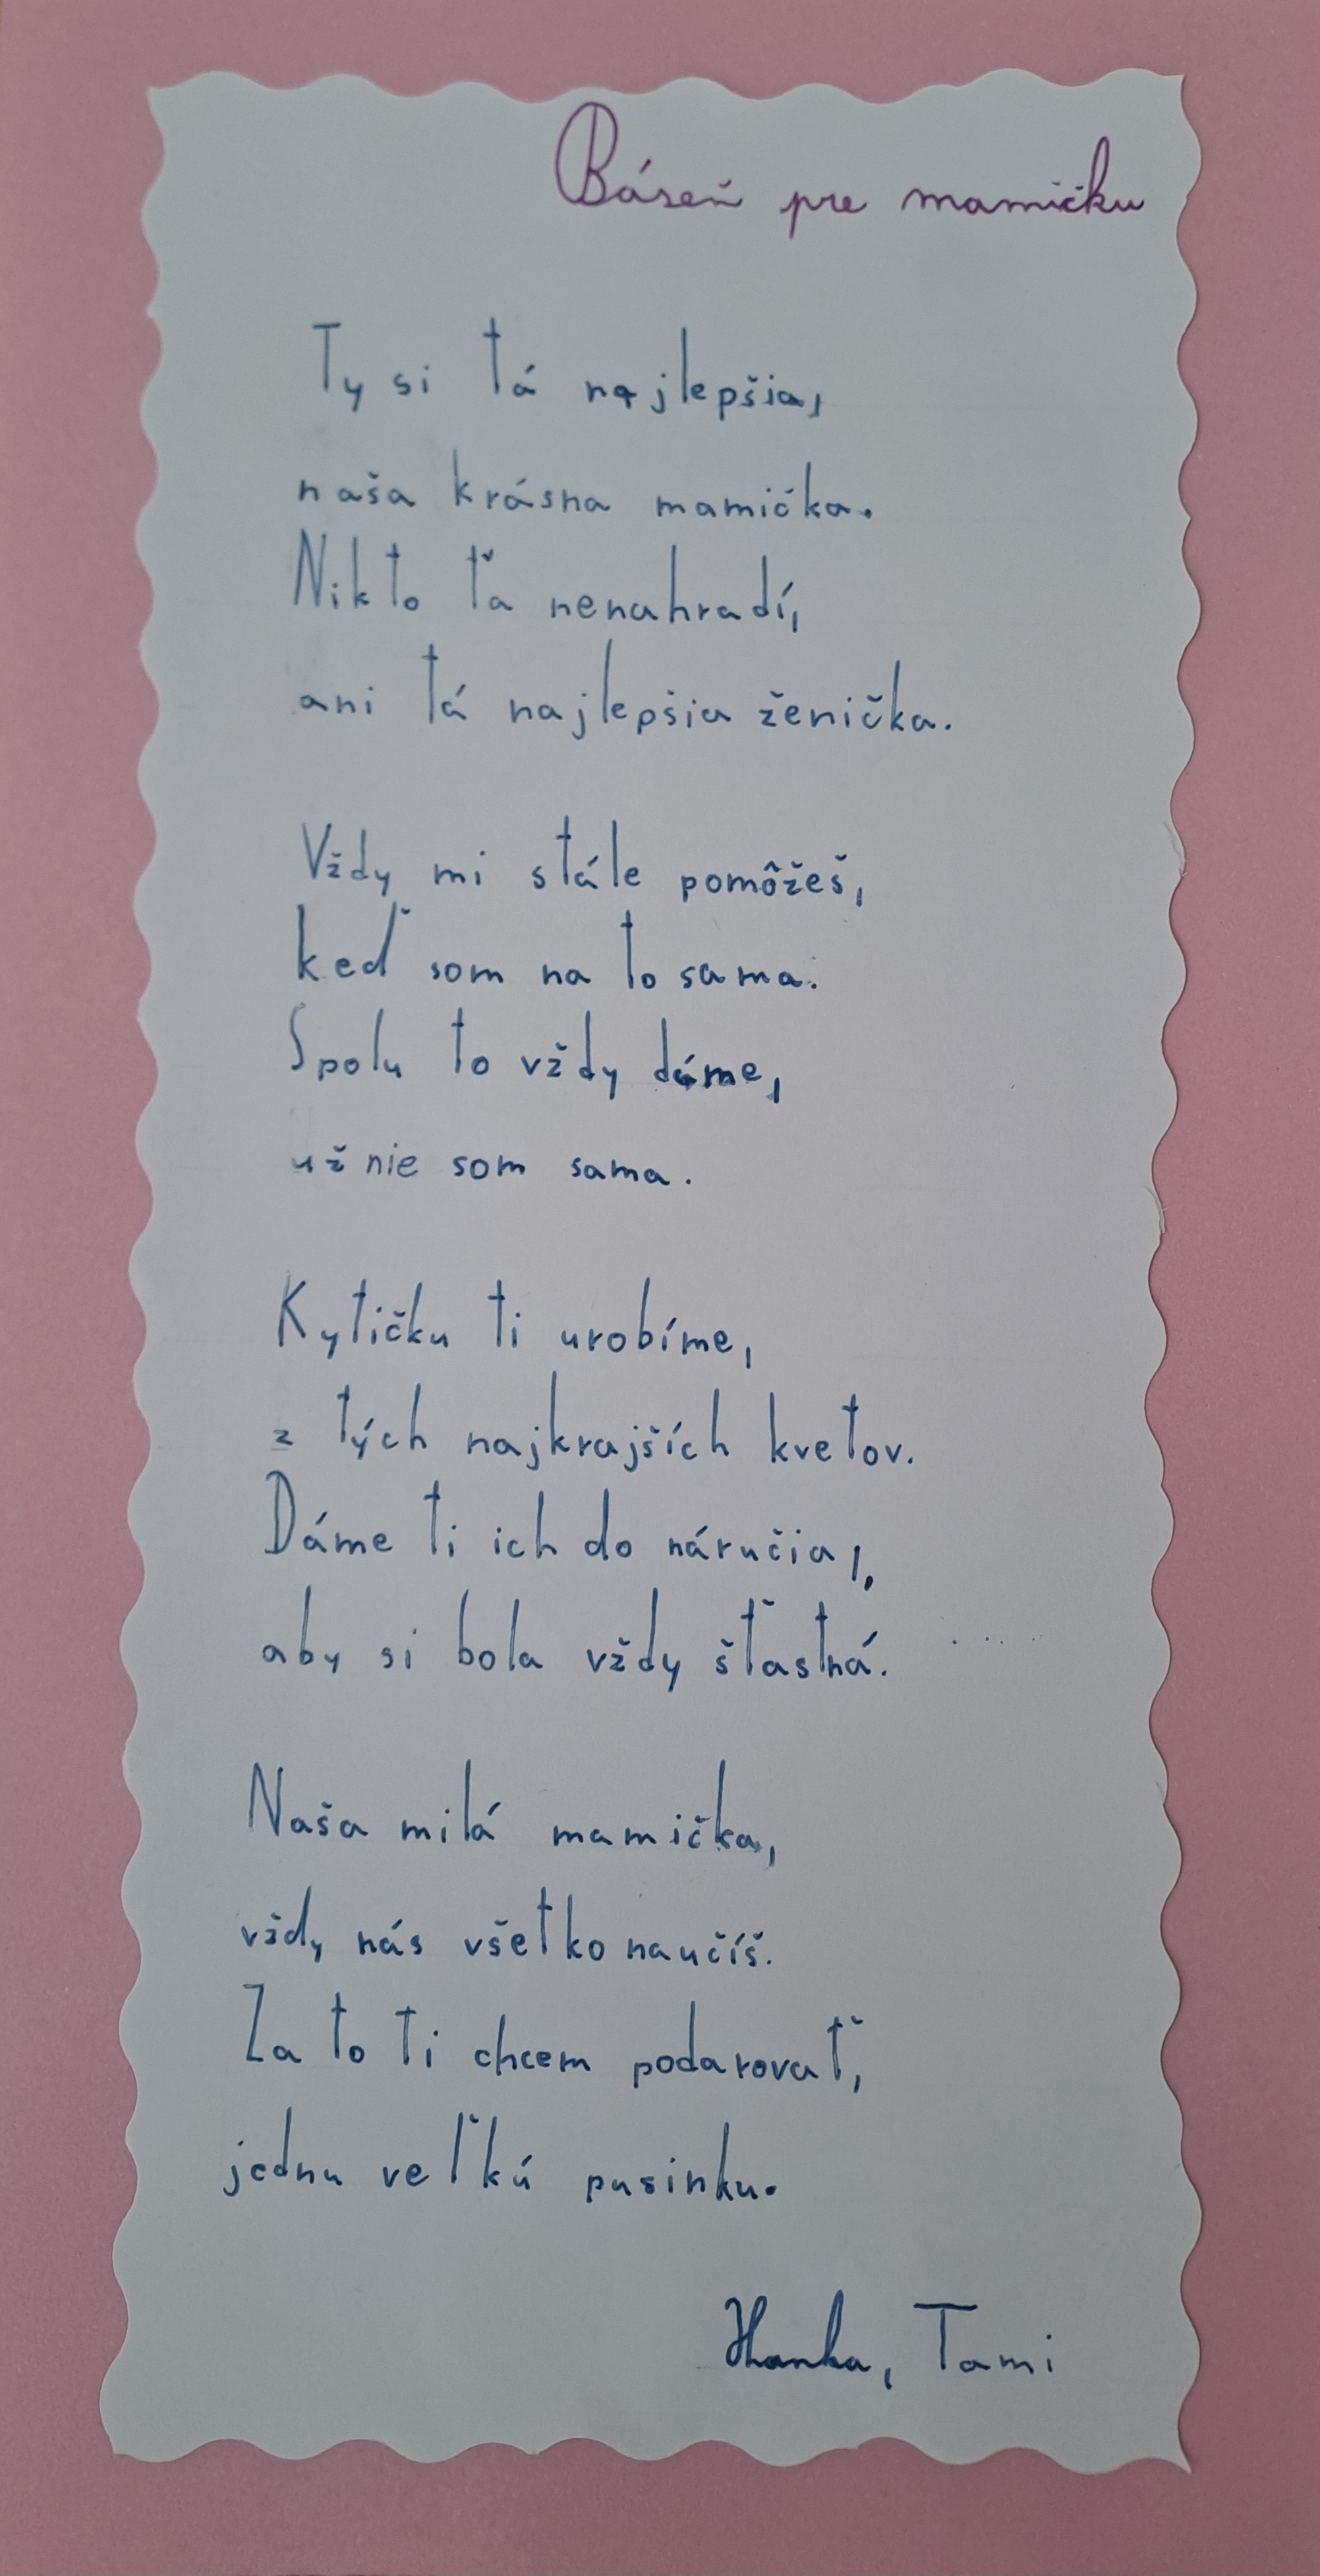 Báseň pre mamičku
Ty si tá najlepšia,
naša krásna mamička.
Nikto ťa nenahradí,
ani tá najlepšia ženička.
Vždy mi stále pomôžeš,
keď som na to sama.
Spolu to vždy dáme,
už nie som sama.
Kytičku ti urobíme,
z tých najkrajších kvetov.
Dáme ti ich do náručia,
aby si bola vždy šťastná.
Naša milá mamička,
vždy nás všetko naučíš.
Za to ti chcem podarovať,
jednu veľkú pusinku.
Hanka, Tami